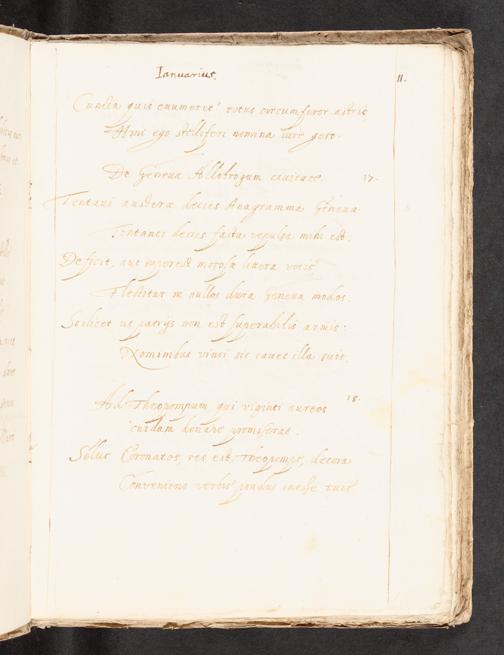 Ianuarius.
11.
Cuncta quis enumeret? totus circumferor astris
Hinc ego stelliferi nomina iure gero.
De Geneua Allobrogum ciuitate.
17.
Tentaui audere decies Anagramma Geneua
Tentanti decies facta repulsa mihi est.
Deficit, aut superest morosa littera votis
Flectitur in nullos dura Geneua modos.
Scilicet ut patrijs non est superabilis armis:
Nominibus vinci sic cauet illa suis.
18.
Ad Theopompum qui viginti aureos
cuidam donare promiserat.
Solue Coronatos, res est, Theopompe, decora
Conueniens verbis pondus inesse tuis